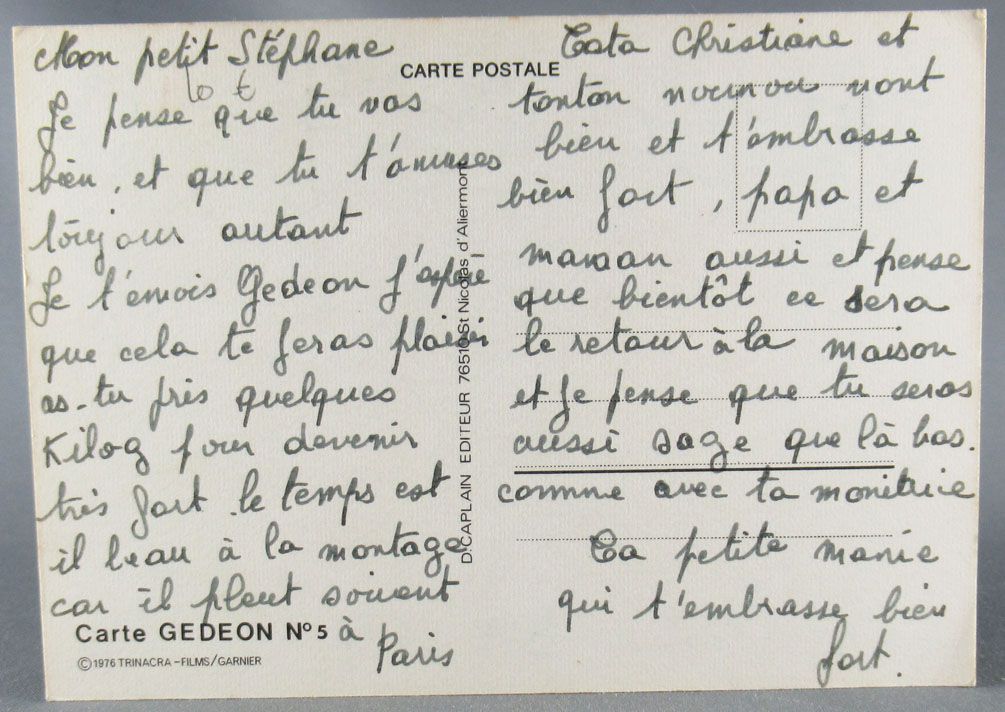 Mon petit Stéphane
Je pense que tu vas
bien, et que tu t'amuses
toujour autant
Je t'envois Gedeon j'espere
que cela te feras plaisir
as-tu pris quelques
Kilog pour devenir
très fort le temps est
il beau à la montage
car il pleut souvent
à
Paris
CARTE POSTALE
D. CAPLAIN EDITEUR 76510 St Nicolas d'Aliermont
Tata Christiane et
tonton nounou vont
bien et t'embrasse
bien fort, papa et
maman aussi et pense
que bientôt ce sera
le retour à la maison
et je pense que tu seras
aussi sage que là bas.
comme avec ta monitrice
Ta petite mamie
qui t'embrasse bien
fort.
Carte GEDEON N°5
© 1976 TRINACRA-FILMS/GARNIER